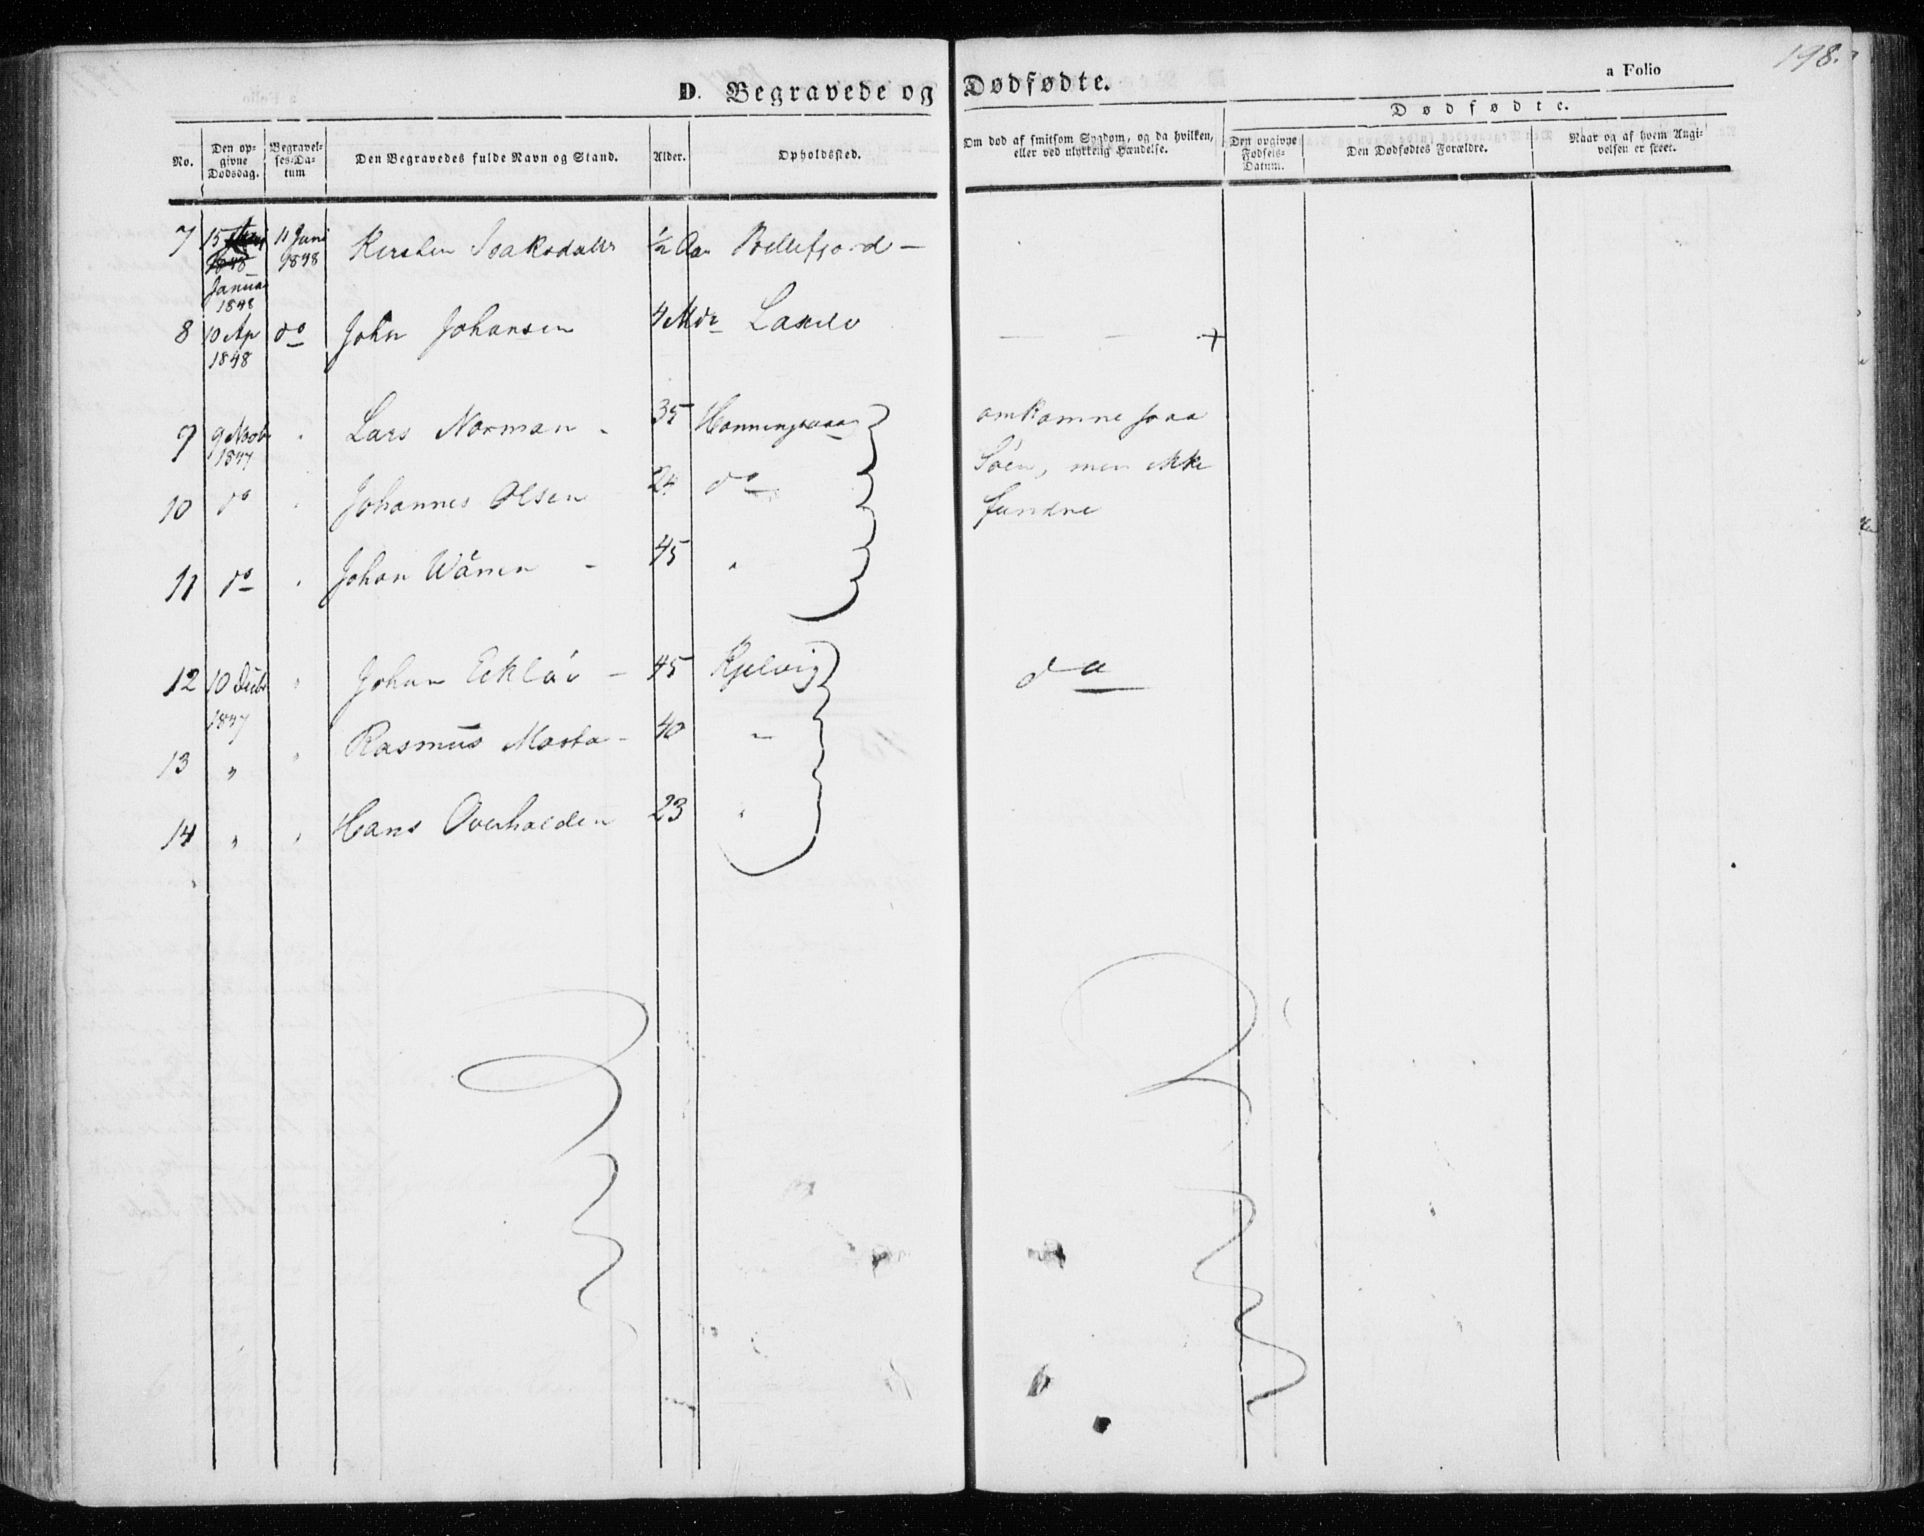 198.
D. Begravede og Dødfødte.
a Folio
No.
Den op-
givne
Dødsdag.
Begravel-
ses-Da-
tum
Den Begravedes fulde Navn og Stand.
Alder.
Opholdssted.
Om død af smitsom Sygdom, og da hvilken,
eller ved ulykkelig Hændelse.
Dødfødte.
Den opgivne
Fødsels-
Datum.
Den Dødfødtes Forældre.
Naar og af hvem Angi-
velsen er skeet.
7 15 Januar 1848 11 Juni 1848 Kersten Isaksdatter ½ Aar
8 10 Ap 1848 do John Johansen 4 Mdr +
9 9 Novbr 1847 " Lars Norman - 35 Honningvaag omkomne paa
Söen, men ikke
fundne
10 do " Johannes Olsen 24 do
11 do " Johan - 45 "
12 10 Decbr 1847 " Johan - 45 Kjelvig do
13 " " Rasmus - 40 "
14 " " Hans Overhalden 23 "